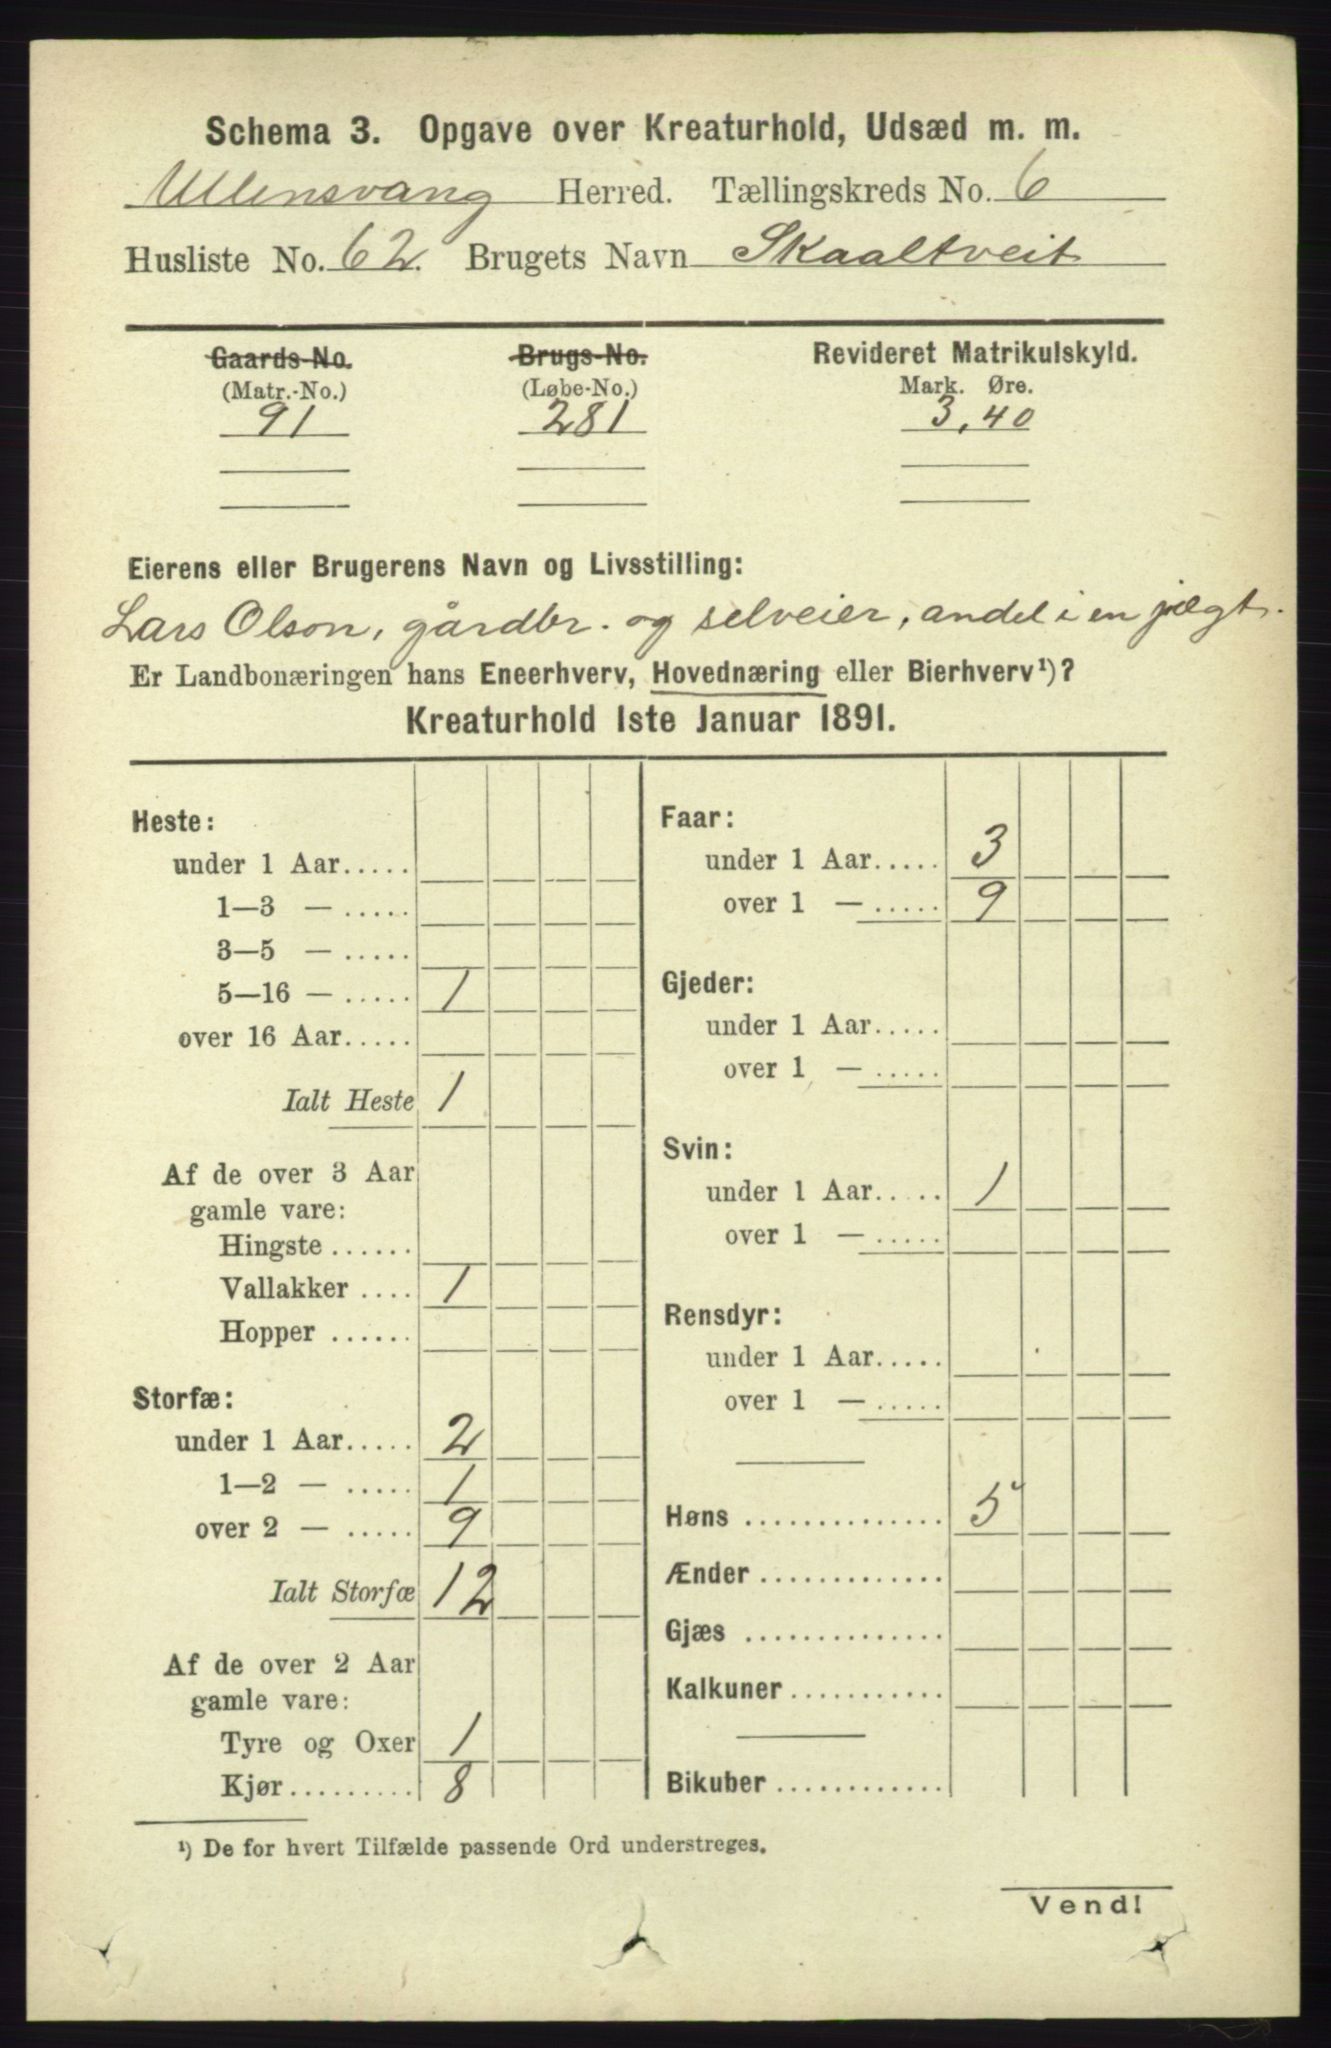 Schema 3. Opgave over Kreaturhold, Udsæd m. m.
Ullensvang Herred. Tællingskreds No. 6
Husliste No. 62. Brugets Navn Skaaltveit
Gaards-No. Brugs-No. Revideret Matrikulskyld.
(Matr.-No.) (Løbe-No.) Mark. Øre.
91 281 3,40
Eierens eller Brugerens Navn og Livsstilling:
Lars Olson, gårdbr. og selveier, andel i en jægt.
Er Landbonæringen hans Eneerhverv, Hovednæring eller Bierhverv¹)?
Kreaturhold 1ste Januar 1891.
Heste:
under 1 Aar.....
1—3 — .....
3—5 — .....
5—16 — ..... 1
over 16 Aar.....
Ialt Heste 1
Af de over 3 Aar
gamle vare:
Hingste ......
Vallakker .... 1
Hopper ......
Storfæ:
under 1 Aar..... 2
1—2 — ..... 1
over 2 — ..... 9
Ialt Storfæ 12
Af de over 2 Aar
gamle vare:
Tyre og Oxer 1
Kjør.......... 8
Faar:
under 1 Aar..... 3
over 1 — ..... 9
Gjeder:
under 1 Aar.....
over 1 — .....
Svin:
under 1 Aar..... 1
over 1 — .....
Rensdyr:
under 1 Aar.....
over 1 — .....
Høns .............. 5
Ænder .............
Gjæs ..............
Kalkuner...........
Bikuber ............
¹) De for hvert Tilfælde passende Ord understreges.
Vend!